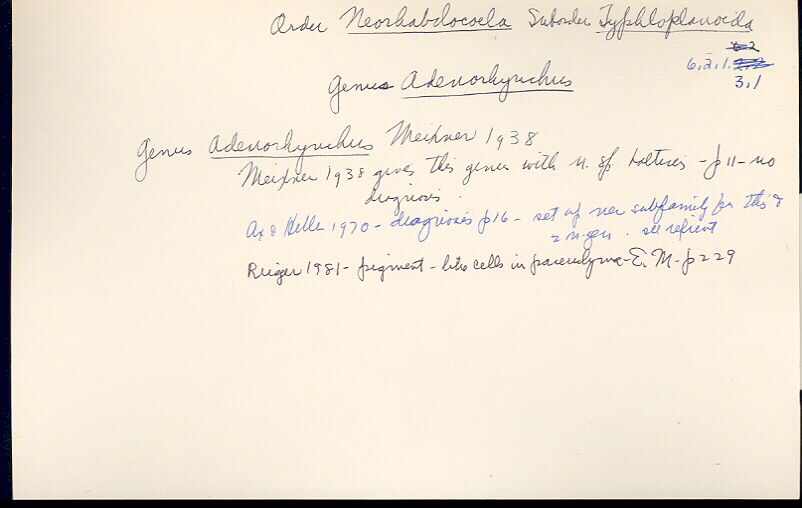 Order Neorhabdocoela Suborder Typhloplanoida
6.2.1.
3,1
Genus Adenorhynchus
Genus Adenorhynchus Meixner 1938
Meixner 1938 gives this genus with n. sp balticus - p 11 - no
diagnosis.
Ax & Heller 1970 - diagnosis p16 - set up new subfamily for this &
2 n.gen. see reprint
Rieger 1981 - pigment - like cells in parenchyma - E. M - p 229